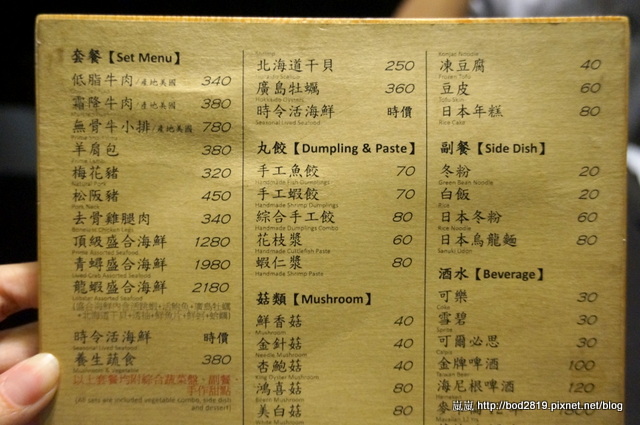 套餐【Set Menu】
低脂牛肉/產地美國 340
霜降牛肉/產地美國 380
無骨牛小排/產地美國 780
羊肩包 380
梅花豬 320
松阪豬 450
去骨雞腿肉 340
頂級盛合海鮮 1280
青蟳盛合海鮮 1980
龍蝦盛合海鮮 2180
時令活海鮮 時價
養生蔬食 380
以上套餐均附綜合蔬菜盤、副餐
手作甜點
(All sets are included vegetable combo, side dish
and dessert)
北海道干貝 250
廣島牡蠣 360
時令活海鮮 時價
Seasonal Lived Seafood
丸餃【Dumpling & Paste】
手工魚餃 70
Handmade Fish Dumplings
手工蝦餃 70
Handmade Shrimp Dumplings
綜合手工餃 80
Handmade Dumplings Combo
花枝漿 60
Handmade Cuttlefish Paste
蝦仁漿 80
Handmade Shrimp Paste
菇類【Mushroom】
鮮香菇 40
Mushroom
金針菇 40
Needle Mushroom
杏鮑菇 40
King Oyster Mushroom
鴻喜菇 80
美白菇 80
凍豆腐 40
Frozen Tofu
豆皮 60
Tofu Skin
日本年糕 80
Rice Cake
副餐【Side Dish】
冬粉 20
Green Bean Noodle
白飯 20
Rice
日本冬粉 60
Rice Noodle
日本烏龍麵 80
Sanuki Udon
酒水【Beverage】
可樂 30
Coke
雪碧 30
Sprite
可爾必思 30
Calpis
金牌啤酒 100
海尼根啤酒 120
嵐嵐 http://bod2819.pixnet.net/blog